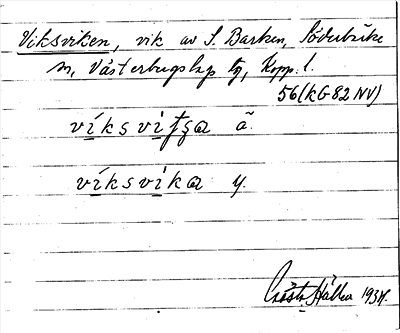 Viksviken, vik av S. Barken, Söderbärke
sn, Västerbergslags tg, Kopp. l.
56 (KG 82 NV)
víksvi̱ʈʂa ä.
víksvi̱ka y.
Gösta Hållen 1934.